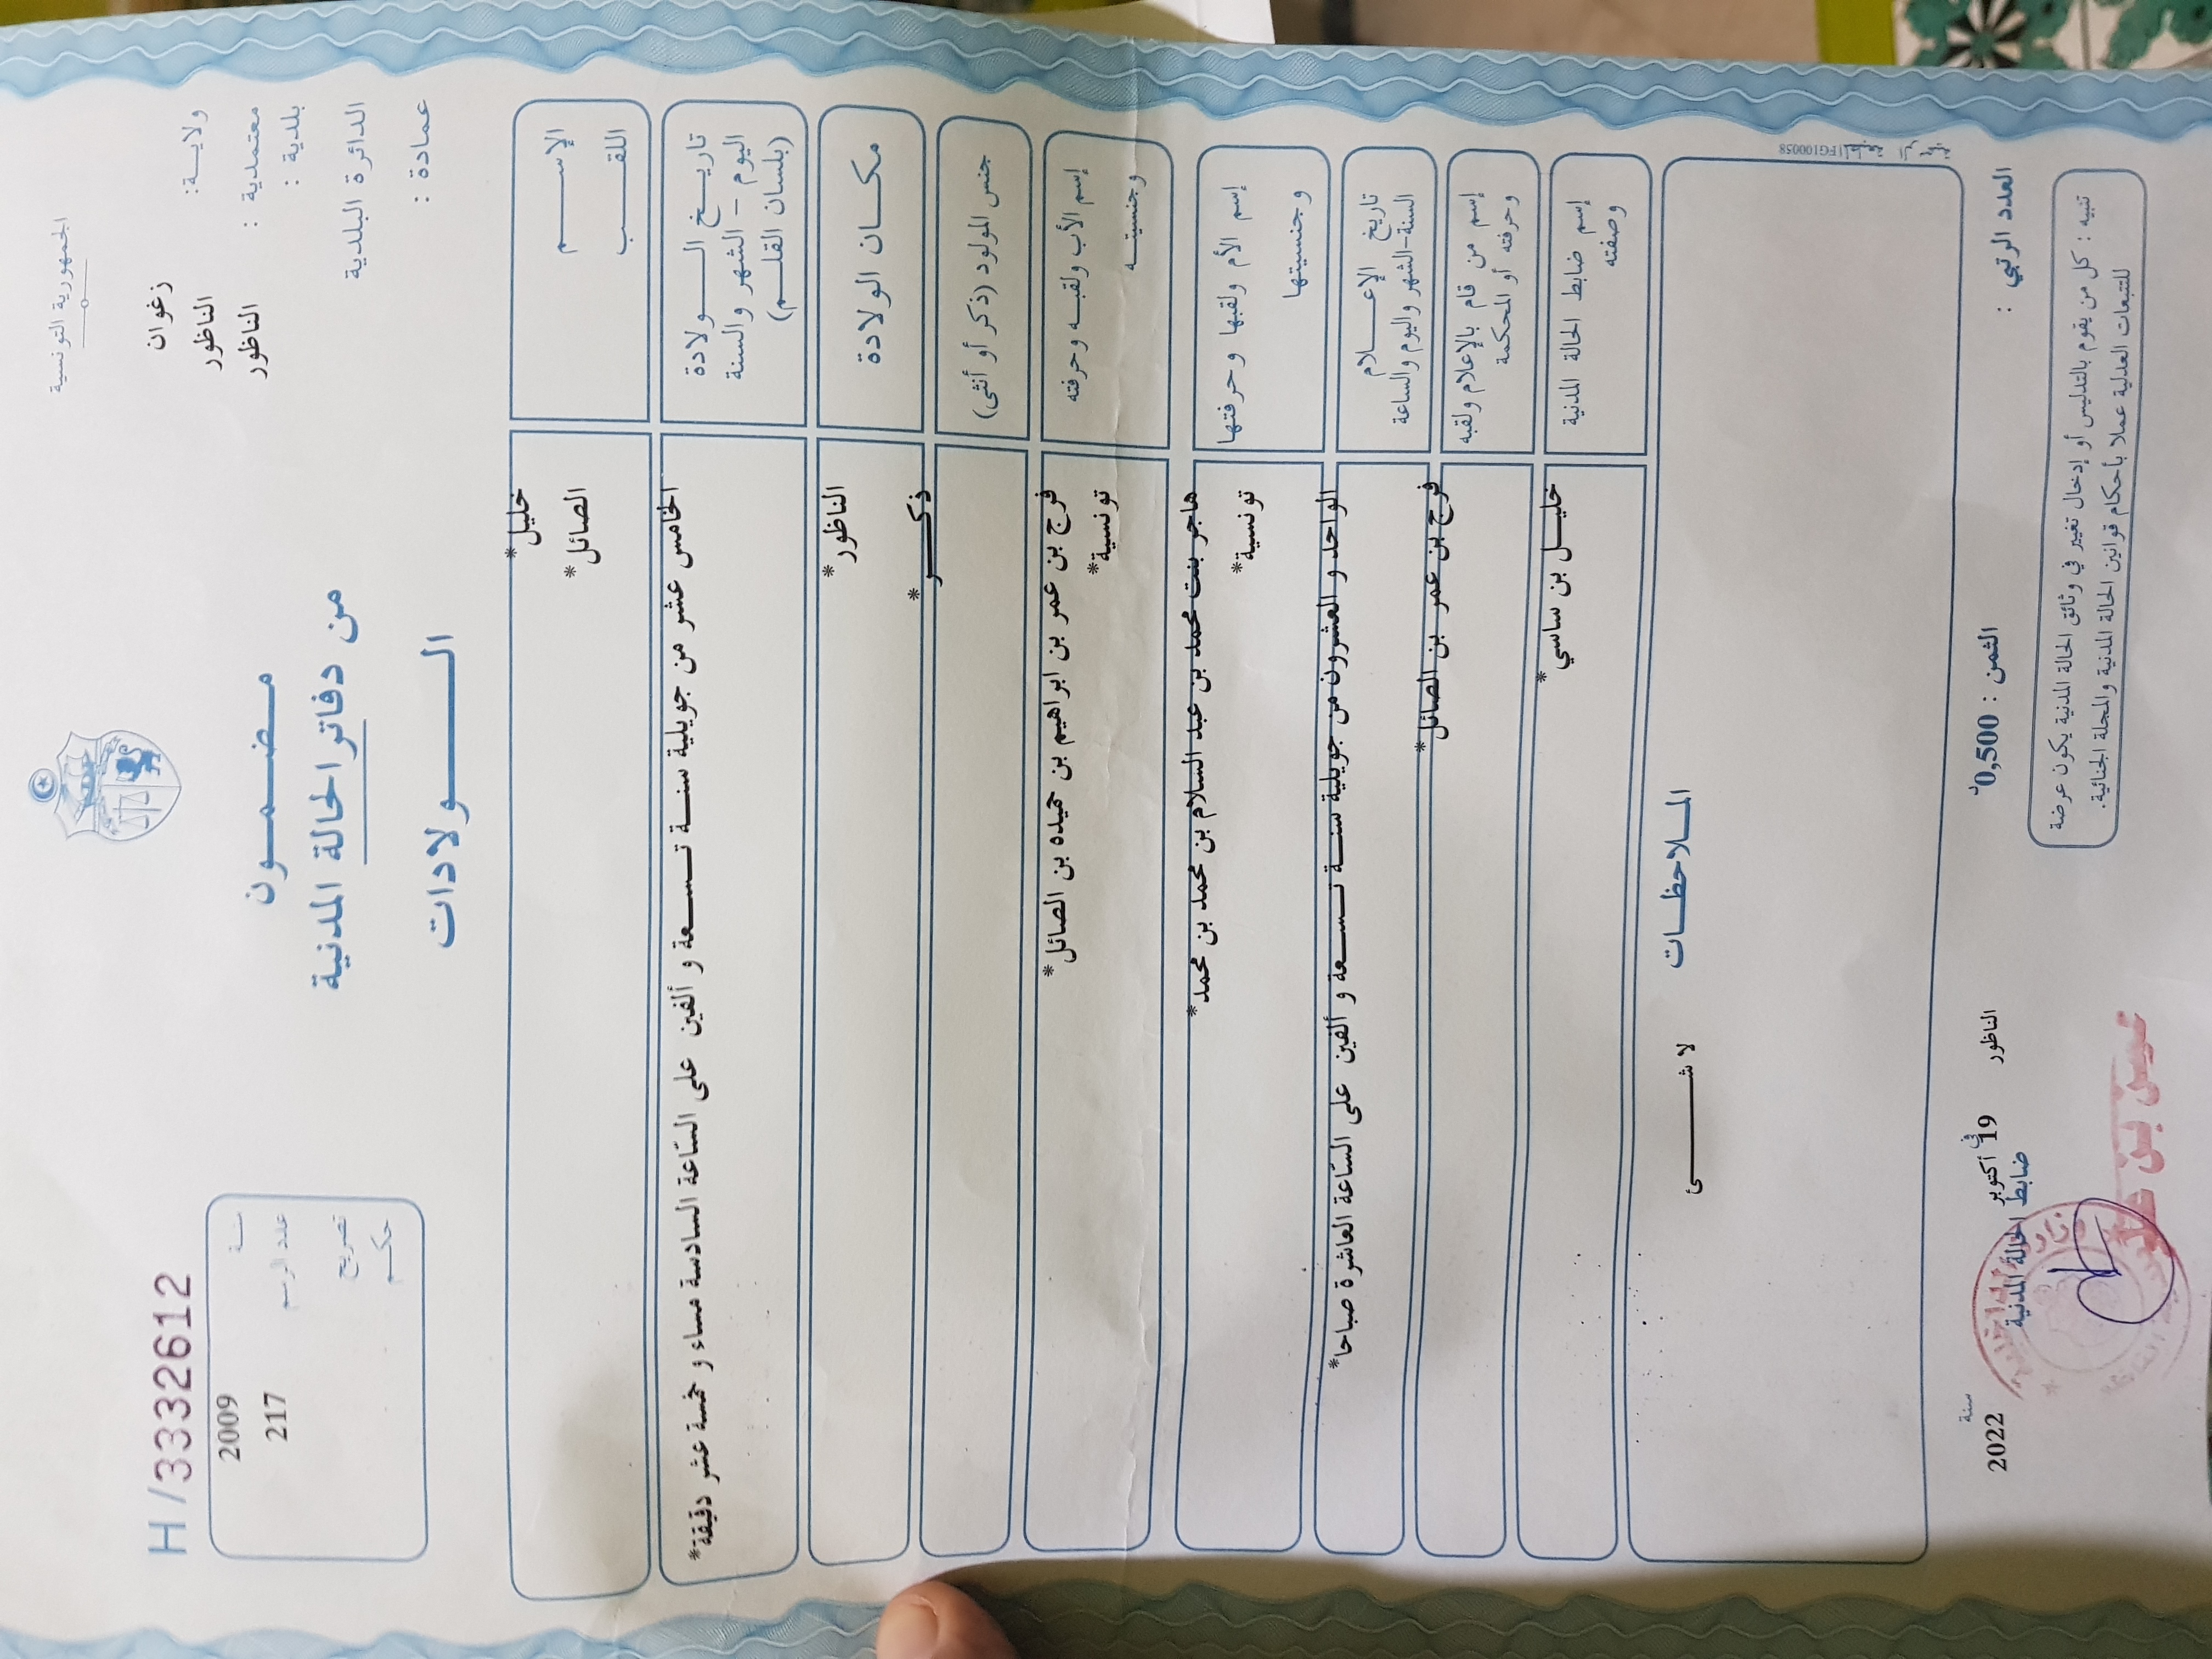 الجمهورية التونسية
ولايـــة: زغوان
معتمدية : الناظور
بلدية : الناظور
الدائرة البلدية
عمادة :
مـضـمـــون
من دفاتر الحالة المدنية
الـــــولادات
H/3332612
سنة 2009
عدد الرسم 217
تصريح
حكـــم
الإســـــم خليل*
اللقـــــب الصائل*
تاريـــخ الـــــولادة الخامس عشر من جويلية سنـــة تـــسعة و ألفين على السّاعة السادسة مساء و خمسة عشر دقيقة*
اليوم – الشهر والسنة
(بلسان القلـــم)
مكـــان الولادة الناظور*
جنس المولود (ذكر أو أنثى) ذكـــر*
إسم الأب ولقبـــه وحرفته فرج بن عمر بن ابراهيم بن حميده بن الصائل*
وجنسيتـــه تونسية*
إسم الأم ولقبها وحرفتها هاجر بنت محمد بن عبد السلام بن محمد بن محمد*
وجنسيتها تونسية*
تاريخ الإعـــــلام الواحد و العشرون من جويلية سنـــة تـــسعة و ألفين على السّاعة العاشرة صباحا*
السنة-الشهر واليوم والساعة
إسم من قام بالإعلام ولقبه فرج بن عمر بن الصائل*
وحرفته أو المحكمة
إسم ضابط الحالة المدنية خليـــل بن ساسي*
وصفته
المـــلاحظـــات
لا شـــــئ
المطبعة الرسمية FG100058
العدد الرتبي :
الثمن : 0,500د
الناظور في 19 أكتوبر سنة 2022
ضابط الحالة المدنية
تنبيه : كل من يقوم بالتدليس أو إدخال تغيير في وثائق الحالة المدنية يكون عرضة
للتتبعات العدلية عملا بأحكام قوانين الحالة المدنية والمجلة الجنائية.